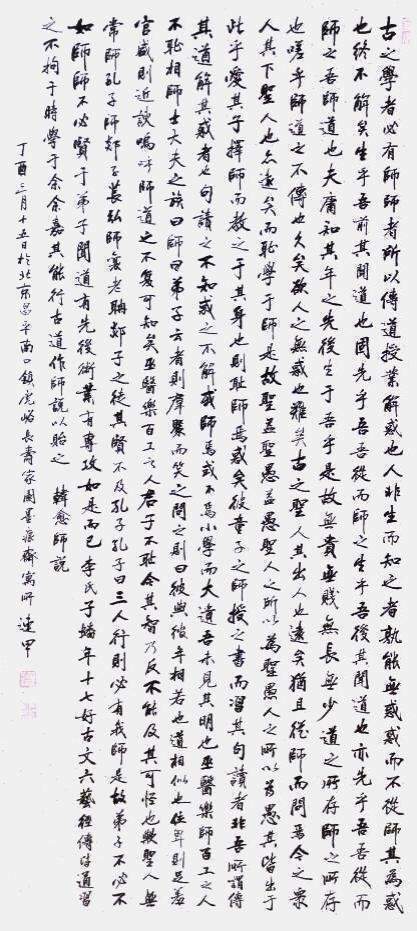 古之學者必有師師者所以傳道授業解惑也人非生而知之者孰能無惑惑而不從師其為惑
也終不解矣生乎吾前其聞道也固先乎吾吾從而師之生乎吾後其聞道也亦先乎吾吾從而
師之吾師道也夫庸知其年之先後生于吾乎是故無貴無賤無長無少道之所存師之所存
也嗟乎師道之不傳也久矣欲人之無惑也難矣古之聖人其出人也遠矣猶且從師而問焉今之眾
人其下聖人也亦遠矣而恥學于師是故聖益聖愚益愚聖人之所以為聖愚人之所以為愚其皆出于
此乎愛其子擇師而教之于其身也則恥師焉惑矣彼童子之師授之書而習其句讀者非吾所謂傳
其道解其惑者也句讀之不知惑之不解或師焉或不焉小學而大遺吾未見其明也巫醫樂師百工之人
不恥相師士大夫之族曰師曰弟子云者則群聚而笑之問之則曰彼與彼年相若也道相似也位卑則足羞
官盛則近諛嗚呼師道之不復可知矣巫醫樂百工之人君子不恥今其智乃反不能及其可怪也歟聖人無
常師孔子師郯子萇弘師襄老聃郯子之徒其賢不及孔子孔子曰三人行則必有我師是故弟子不必不
如師師不必賢于弟子聞道有先後術業有專攻如是而已李氏子蟠年十七好古文六藝經傳皆通習
之不拘于時學于余余嘉其能行古道作師說以貽之 韓愈師說
丁酉三月十五日於北京昌平南口鎮虎峪長壽家園墨痕齋寓所 連甲